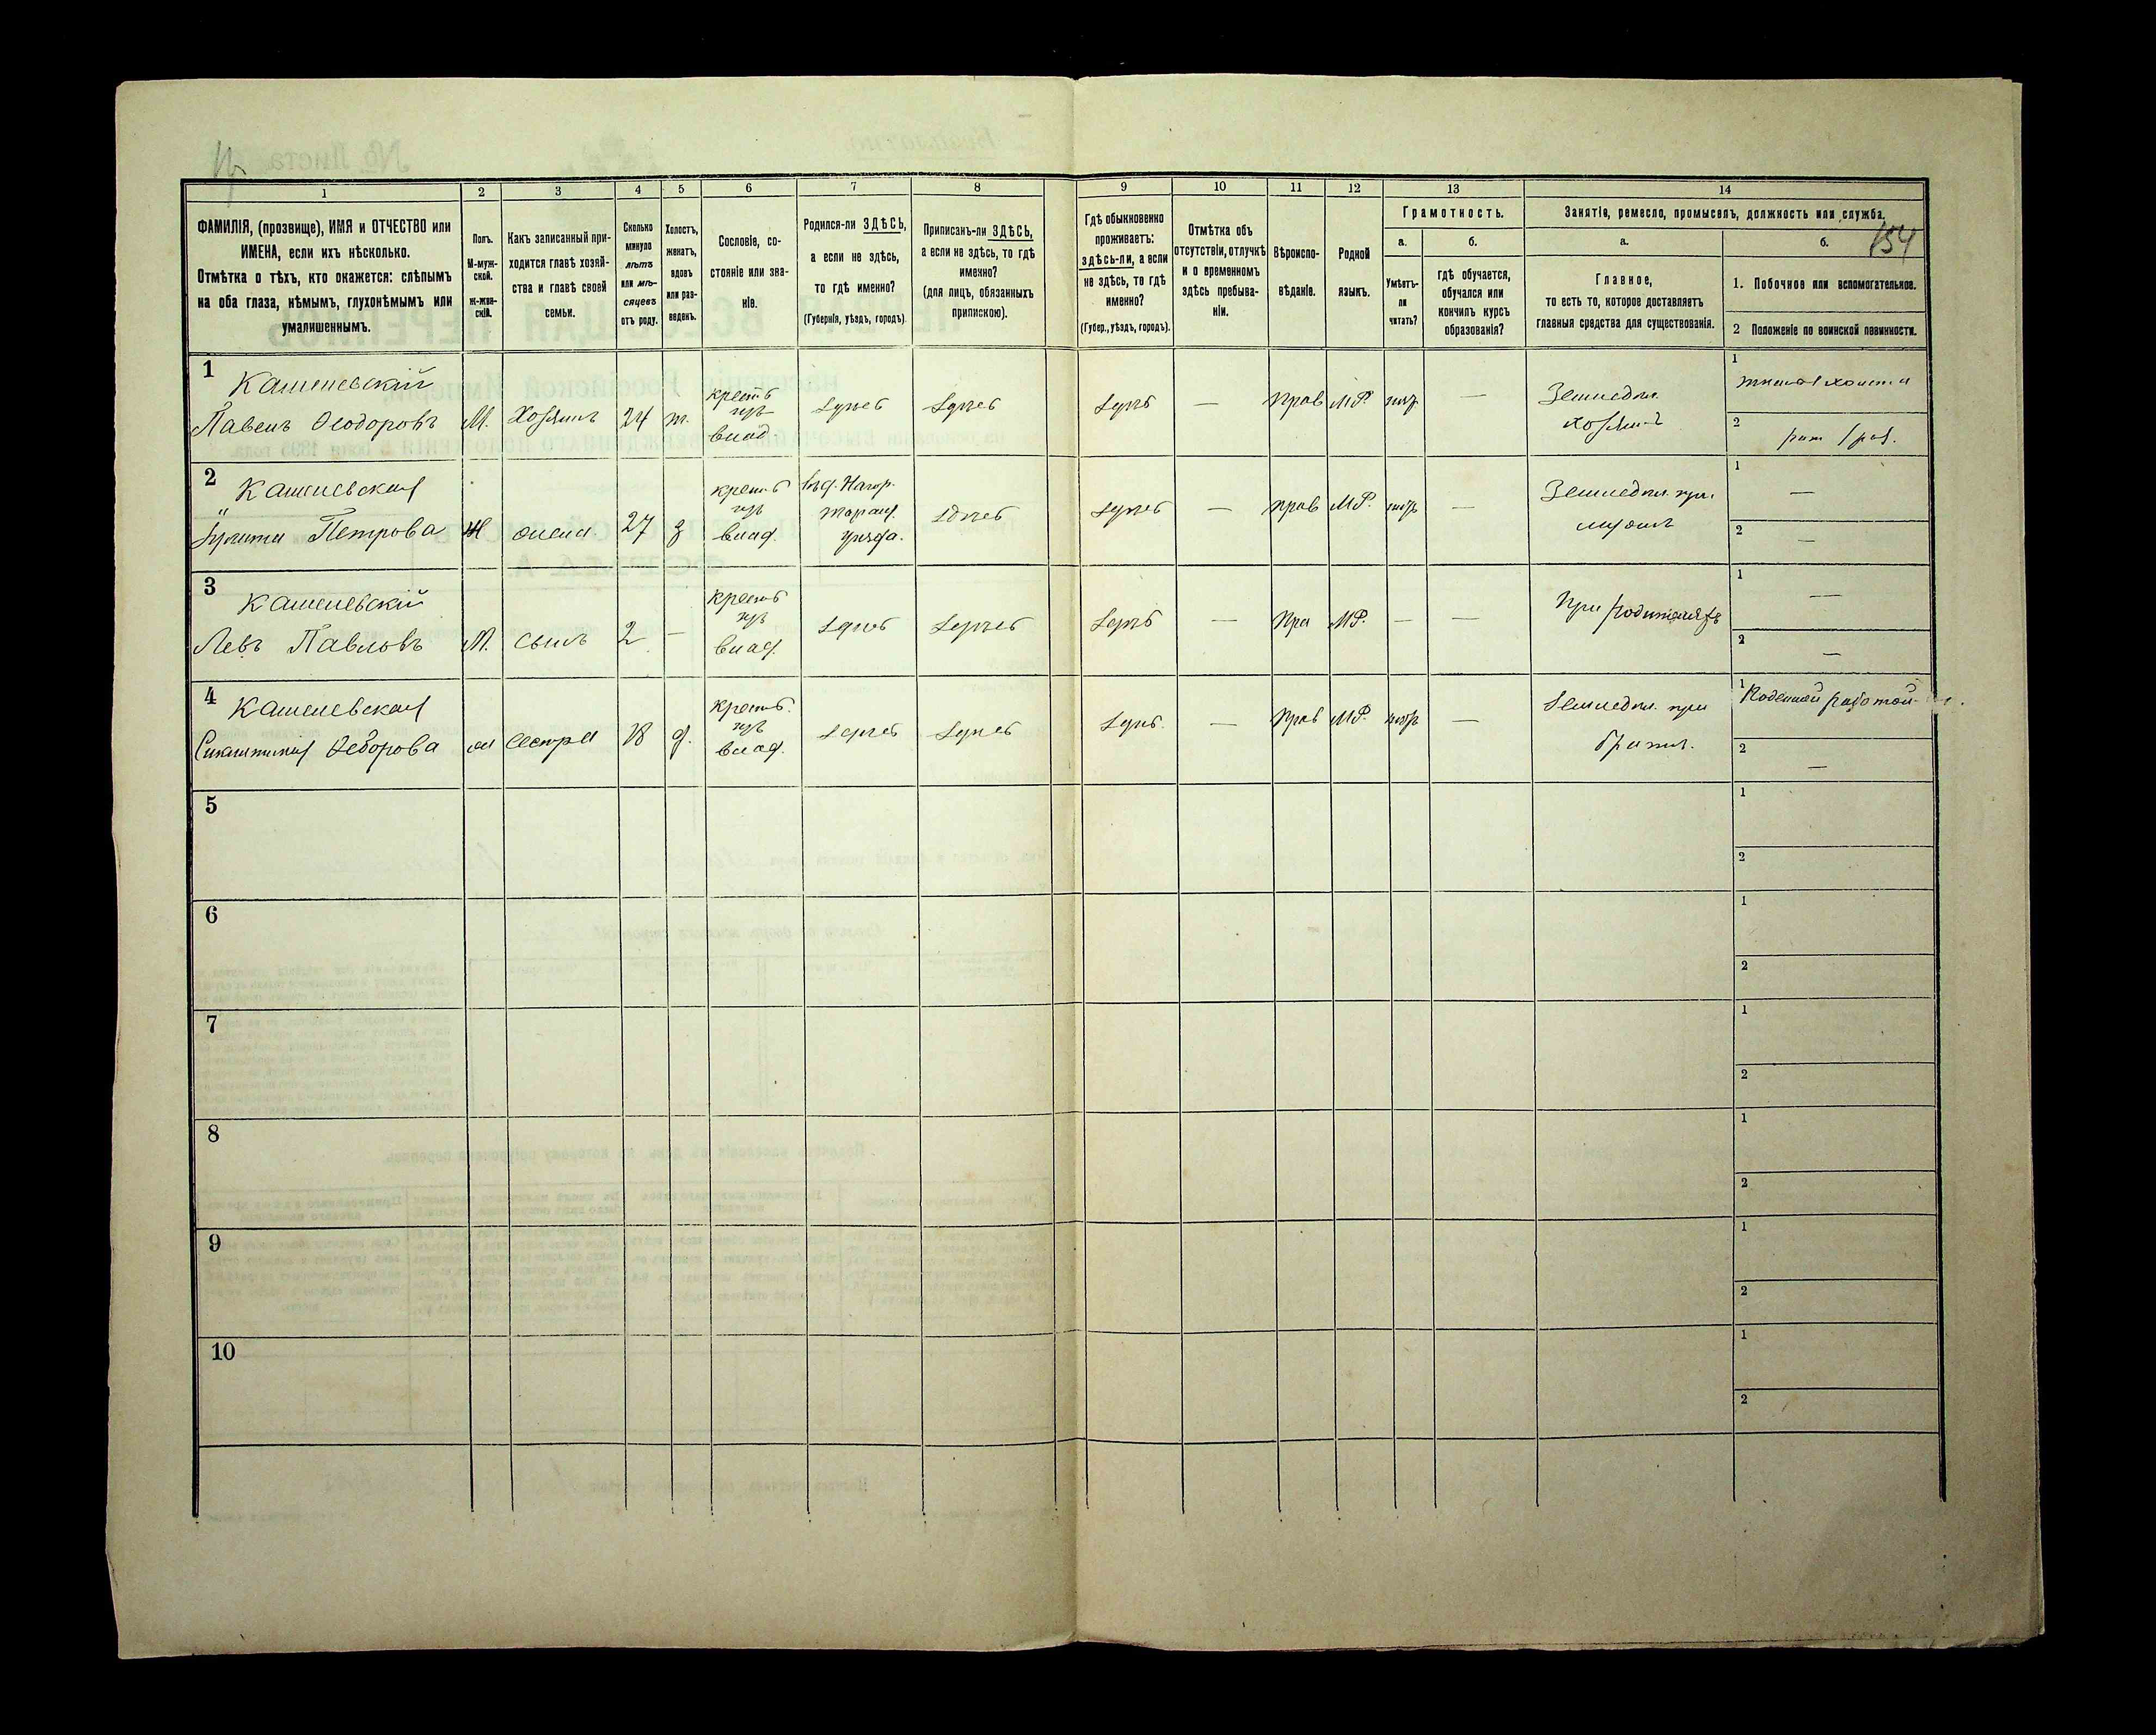 154
1 2 3 4 5 6 7 8 9 10 11 12 13 14
ФАМИЛІЯ, (прозвище), ИМЯ и ОТЧЕСТВО или
ИМЕНА, если ихъ нѣсколько.
Отмѣтка о тѣхъ, кто окажется: слѣпымъ
на оба глаза, нѣмымъ, глухонѣмымъ или
умалишеннымъ.
Полъ.
М-муж-
ской.
Ж-жен-
скій.
Какъ записанный при-
ходится главѣ хозяй-
ства и главѣ своей
семьи.
Сколько
минуло
лѣтъ
или мѣ-
сяцевъ
отъ роду.
Холостъ,
женатъ,
вдовъ
или раз-
веденъ.
Сословіе, со-
стояніе или зва-
ніе.
Родился-ли ЗДѢСЬ,
а если не здѣсь,
то гдѣ именно?
(Губернія, уѣздъ, городъ).
Приписанъ-ли ЗДѢСЬ,
а если не здѣсь, то гдѣ
именно?
(для лицъ, обязанныхъ
припискою).
Гдѣ обыкновенно
проживаетъ:
здѣсь-ли, а если
не здѣсь, то гдѣ
именно?
(Губер., уѣздъ, городъ).
Отмѣтка объ
отсутствіи, отлучкѣ
и о временномъ
здѣсь пребыва-
ніи.
Вѣроиспо-
вѣданіе.
Родной
языкъ.
Грамотность.
а.
Умѣетъ-
ли
читать?
б.
гдѣ обучается,
обучался или
кончилъ курсъ
образованія?
Занятіе, ремесло, промыселъ, должность или служба.
а.
Главное,
то есть то, которое доставляетъ
главныя средства для существованія.
б.
1. Побочное или вспомогательное.
2 Положеніе по воинской повинности.
1 Кашевскій
Павелъ Ѳеодоровъ М. Хозяинъ 24 ж. крест. изъ влад. здѣсь здѣсь здѣсь — Прав М.Р. — Земледѣл. хозяинъ
1
2
2 Кашевская
Петрова Ж жена 27 з крест. изъ влад. уѣзда. здѣсь здѣсь — прав М.Р. — Земледѣл. при мужѣ
1 —
2 —
3 Кашевскій
Левъ Павловъ М. сынъ 2 — крест. изъ влад. здѣсь здѣсь здѣсь — Пра М.Р. — — При родителяхъ
1 —
2 —
4 Кашевская
Ѳедорова ж сестра 18 д. крест. изъ влад. здѣсь здѣсь здѣсь — Прав М.Р. — Земледѣл. при братѣ.
1 Поденной работой
2 —
5 1
2
6 1
2
7 1
2
8 1
2
9 1
2
10 1
2